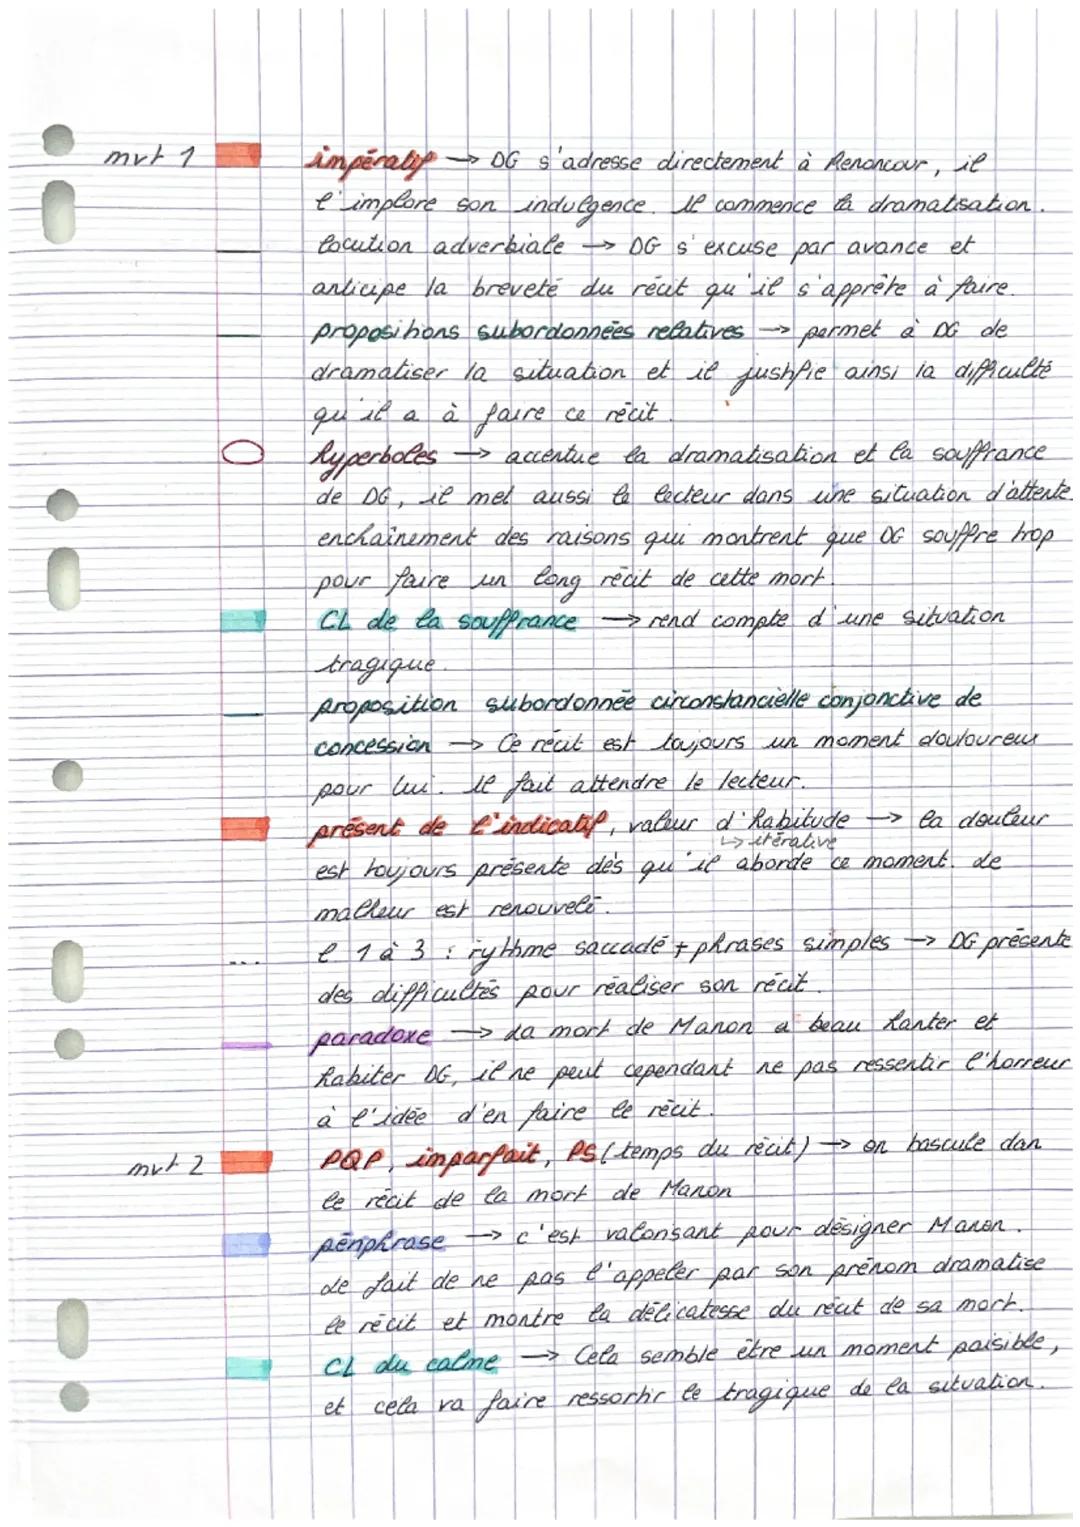 mvt 1 impératif → DG s'adresse directement à Renoncour, il
l'implore son indulgence. Il commence la dramatisation.
locution adverbiale → DG s'excuse par avance et
anticipe la breveté du récit qu'il s'apprête à faire.
propositions subordonnées relatives → permet à DG de
dramatiser la situation et il justifie ainsi la difficulté
qu'il a à faire ce récit.
hyperboles → accentue la dramatisation et la souffrance
de DG, il met aussi le lecteur dans une situation d'attente.
enchaînement des raisons qui montrent que DG souffre trop
pour faire un long récit de cette mort.
CL de la souffrance → rend compte d'une situation
tragique.
proposition subordonnée circonstancielle conjonctive de
concession → Ce récit est toujours un moment douloureux
pour lui. Il fait attendre le lecteur.
présent de l'indicatif, valeur d'habitude → la douleur
↳ itérative
est toujours présente dès qu'il aborde ce moment. Le
malheur est renouvelé.
... l 1 à 3 : rythme saccadé + phrases simples → DG présente
des difficultés pour réaliser son récit.
paradoxe → La mort de Manon a beau hanter et
habiter DG, il ne peut cependant ne pas ressentir l'horreur
à l'idée d'en faire le récit.
mvt 2 PQP, imparfait, PS (temps du récit) → on bascule dan
le récit de la mort de Manon
périphrase → c'est valorisant pour désigner Manon.
Le fait de ne pas l'appeler par son prénom dramatise
le récit et montre la délicatesse du récit de sa mort.
CL du calme → Cela semble être un moment paisible,
et cela va faire ressortir le tragique de la situation.